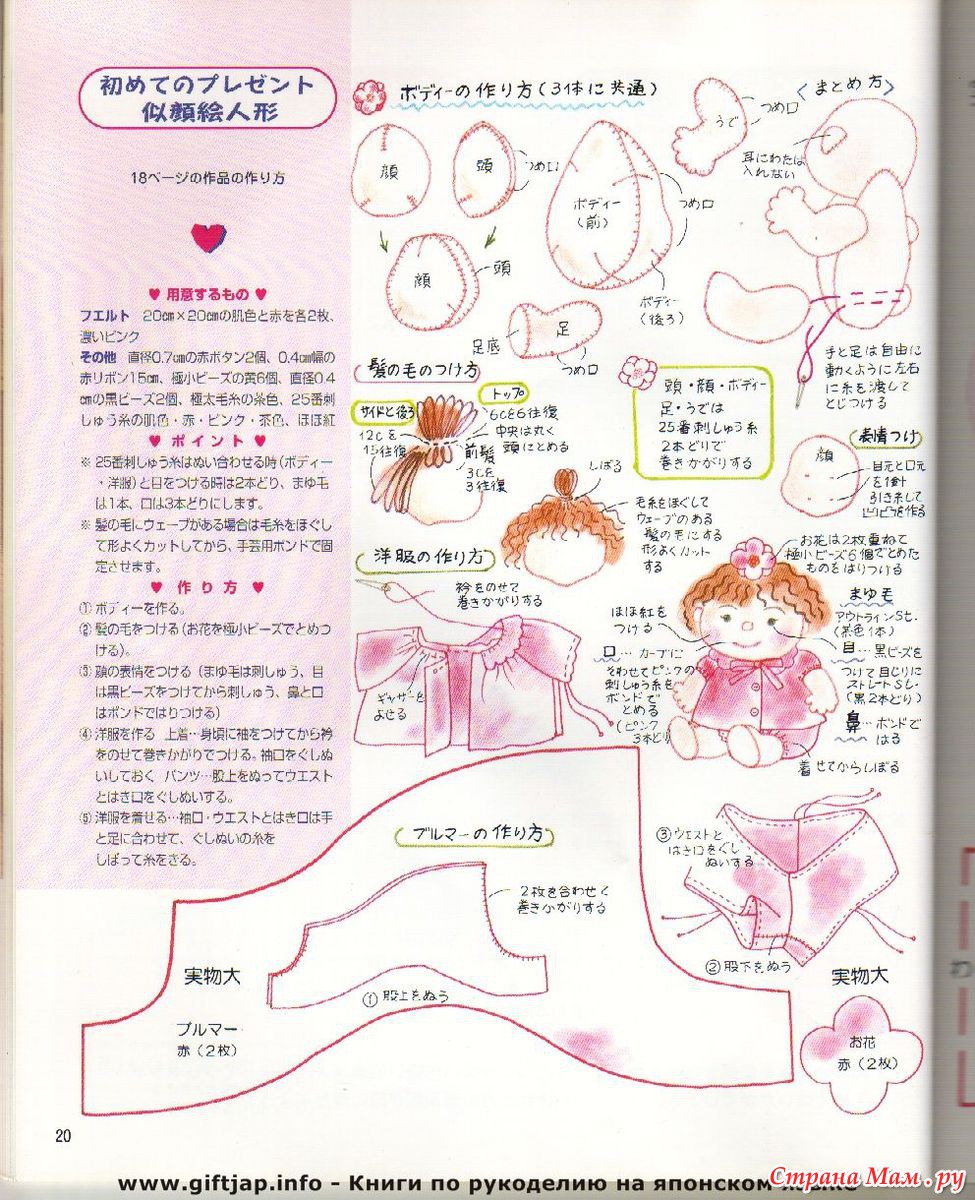 初めてのプレゼント
似顔絵人形
18ページの作品の作り方
♥ 用意するもの ♥
フエルト 20cm×20cmの肌色と赤を各2枚、
濃いピンク
その他 直径0.7cmの赤ボタン2個、0.4cm幅の
赤リボン15cm、極小ビーズの黄6個、直径0.4
cmの黒ビーズ2個、極太毛糸の茶色、25番刺
しゅう糸の肌色・赤・ピンク・茶色、ほほ紅
♥ ポイント ♥
※ 25番刺しゅう糸はぬい合わせる時(ボディー
・洋服)と目をつける時は2本どり、まゆ毛
は1本、口は3本どりにします。
※ 髪の毛にウェーブがある場合は毛糸をほぐし
て形よくカットしてから、手芸用ボンドで固
定させます。
♥ 作り方 ♥
① ボディーを作る。
② 髪の毛をつける(お花を極小ビーズでとめつ
ける)。
③ 顔の表情をつける(まゆ毛は刺しゅう、目
は黒ビーズをつけてから刺しゅう、鼻と口
はボンドではりつける)
④ 洋服を作る 上着…身頃に袖をつけてから衿
をのせて巻きかがりでつける。袖口をぐしぬ
いしておく パンツ…股上をぬってウエスト
とはき口をぐしぬいする。
⑤ 洋服を着せる…袖口・ウエストとはき口は手
と足に合わせて、ぐしぬいの糸を
しぼって糸をきる。
ボディーの作り方(3体に共通)
顔
頭
つめ口
顔
頭
ボディー
(前)
つめ口
ボディー
(後ろ)
足
足底
つめ口
うで
つめ口
<まとめ方>
耳にわたは
入れない
手と足は自由に
動くように左右
に糸を渡して
とじつける
髪の毛のつけ方
サイドと後ろ
12cを
15往復
トップ
6cを6往復
中央は丸く
頭にとめる
前髪
3cを
3往復
しぼる
毛糸をほぐして
ウェーブのある
髪の毛にする
形よくカット
する
頭・顔・ボディー
足・うでは
25番刺しゅう糸
2本どりで
巻きかがりする
表情つけ
顔
目元と口元
を1針
引き糸して
お花は2枚重ねて
極小ビーズ6個でとめた
ものをはりつける
まゆ毛
アウトラインSt.
(茶色1本)
目…黒ビーズを
つけて目じりに
ストレートSt.
(黒2本どり)
鼻…ボンドで
はる
着せてからしぼる
ほほ紅を
つける
口…カーブに
そわせてピンクの
刺しゅう糸を
ボンドで
とめる
(ピンク
3本どり
洋服の作り方
衿をのせて
巻きかがりする
ギャザーを
よせる
ブルマーの作り方
2枚を合わせて
巻きかがりする
①股上をぬう
③ウエストと
はき口をぐし
ぬいする
②股下をぬう
実物大
ブルマー
赤(2枚)
実物大
お花
赤(2枚)
20
www.giftjap.info - Книги по рукоделию на японском
Страна Мам.ру